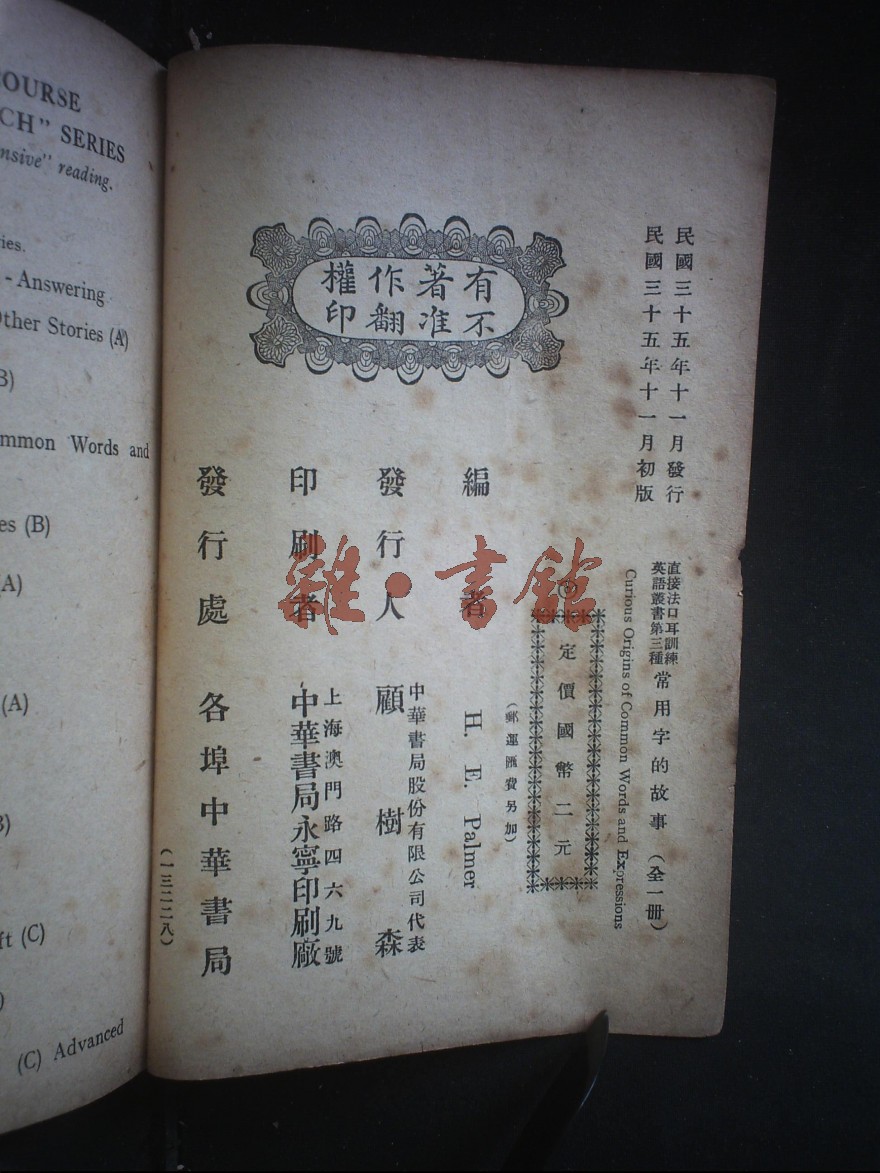 OURSE
CH” SERIES
nsive” reading.
ies.
- Answering
Other Stories (A)
B)
mmon Words and
es (B)
(A)
(A)
B)
ft (C)
)
(C) Advanced
民國三十五年十一月發行
民國三十五年十一月初版
有著作權
不准翻印
直接法口耳訓練
英語叢書第三種
常用字的故事（全一册）
Curious Origins of Common Words and Expressions
定價國幣二元
（郵運匯費另加）
編者 H. E. Palmer
發行人
中華書局股份有限公司代表
顧樹森
印刷者
上海澳門路四六九號
中華書局永寧印刷廠
發行處 各埠中華書局
（一三二二八）
雜·書館